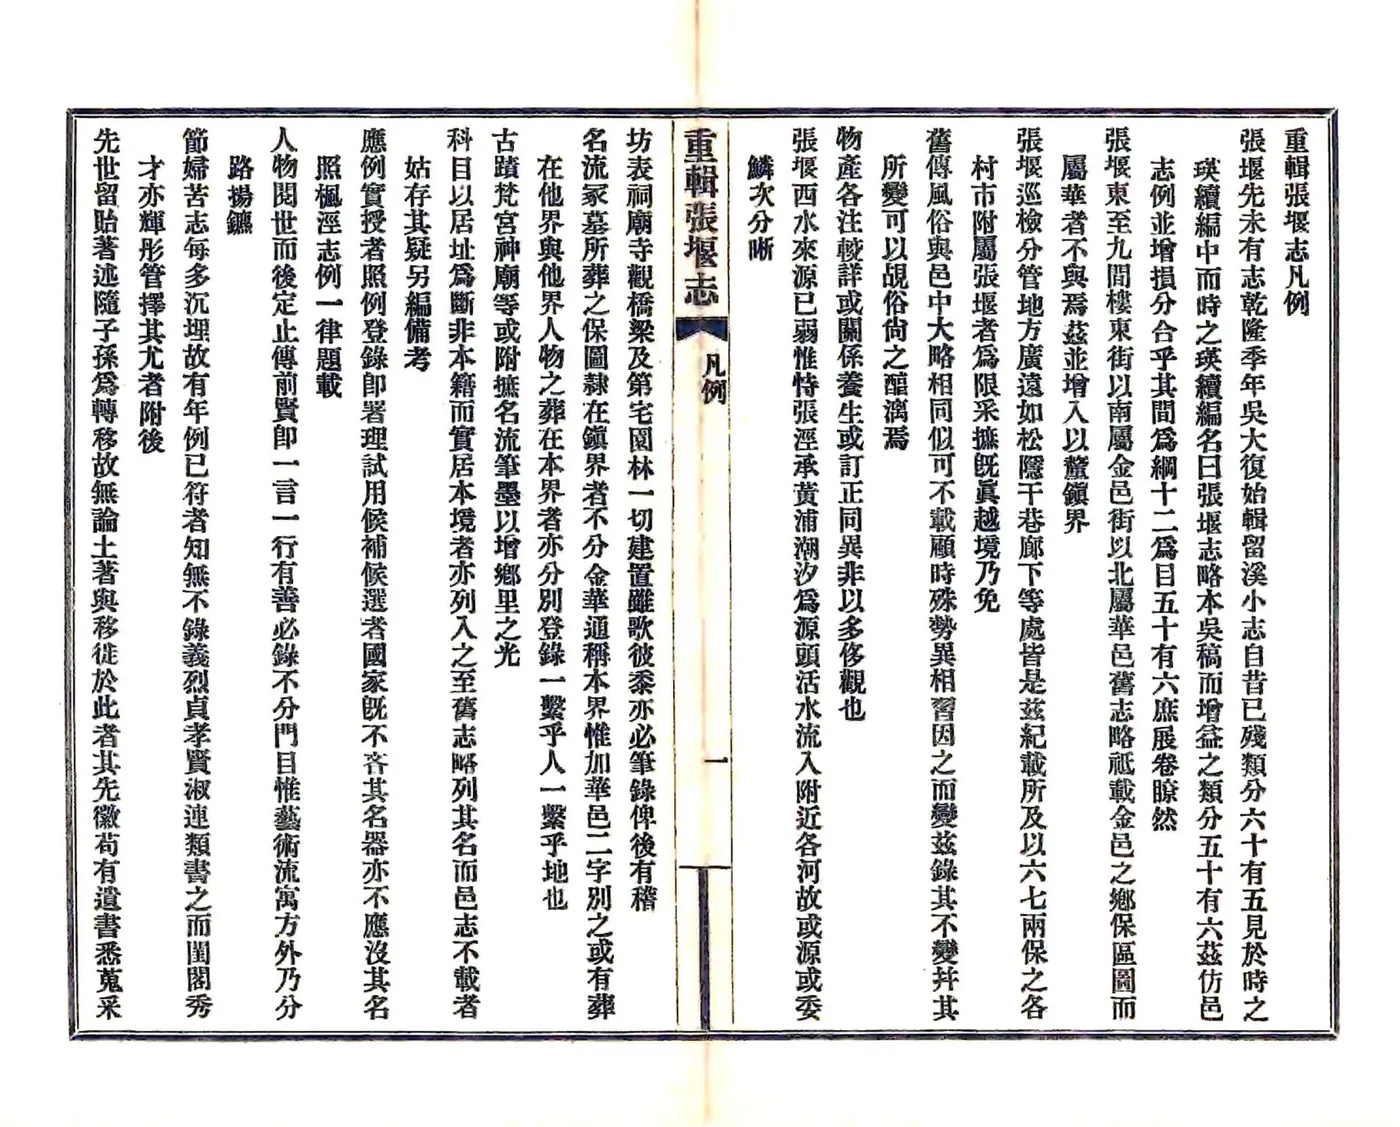 重輯張堰志凡例
張堰先未有志乾隆季年吳大復始輯留溪小志自昔已殘類分六十有五見於時之
瑛續編中而時之瑛續編名曰張堰志略本吳稿而增益之類分五十有六茲仿邑
志例並增損分合乎其間爲綱十二爲目五十有六庶展卷瞭然
張堰東至九間樓東街以南屬金邑街以北屬華邑舊志略祗載金邑之鄉保區圖而
屬華者不與焉茲並增入以釐鎭界
張堰巡檢分管地方廣遠如松隱干巷廊下等處皆是茲紀載所及以六七兩保之各
村市附屬張堰者爲限采摭旣眞越境乃免
舊傳風俗與邑中大略相同似可不載顧時殊勢異相習因之而變茲錄其不變幷其
所變可以覘俗尙之醕漓焉
物產各注較詳或關係養生或訂正同異非以多侈觀也
張堰西水來源已弱惟恃張涇承黃浦潮汐爲源頭活水流入附近各河故或源或委
鱗次分晰
重輯張堰志
凡例
一
坊表祠廟寺觀橋梁及第宅園林一切建置雖歌彼黍亦必筆錄俾後有稽
名流冢墓所葬之保圖隸在鎭界者不分金華通稱本界惟加華邑二字別之或有葬
在他界與他界人物之葬在本界者亦分別登錄一繫乎人一繫乎地也
古蹟梵宮神廟等或附摭名流筆墨以增鄉里之光
科目以居址爲斷非本籍而實居本境者亦列入之至舊志略列其名而邑志不載者
姑存其疑另編備考
應例實授者照例登錄卽署理試用候補候選者國家旣不吝其名器亦不應沒其名
照楓涇志例一律題載
人物閱世而後定止傳前賢卽一言一行有善必錄不分門目惟藝術流寓方外乃分
路揚鑣
節婦苦志每多沉埋故有年例已符者知無不錄義烈貞孝賢淑連類書之而閨閣秀
才亦輝彤管擇其尤者附後
先世留貽著述隨子孫爲轉移故無論土著與移徙於此者其先徽苟有遺書悉蒐采